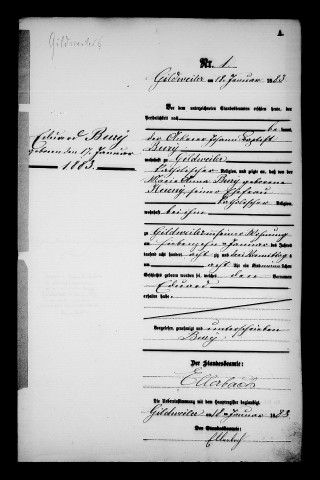 Gildweiler
A.
Nr. 1
Gildweiler am 18. Januar 1883
Vor dem unterzeichneten Standesbeamten erschien heute, der
Persönlichkeit nach
be kannt,
der Ackerer Johann Baptist
Bury
Eduard Bury
geboren den 17. Januar
1883.
wohnhaft zu Gildweiler
katholischer Religion, und zeigte an, daß von der
Maria Anna Bury geborene
seiner Ehefrau
katholischer Religion,
wohnhaft bei ihm
zu Gildweiler in seiner Wohnung
am siebenzehn ten Januar des Jahres
tausend acht hundert acht zig und drei Vormittags
um acht Uhr ein Kind männlichen
Geschlechts geboren worden sei, welches den Vornamen
Eduard
erhalten habe.
Vorgelesen, genehmigt und unterschrieben
Bury
Der Standesbeamte:
Ellerbach
Die Uebereinstimmung mit dem Hauptregister beglaubigt.
Gildweiler am 18. Januar 1883
Der Standesbeamte:
Ellerbach